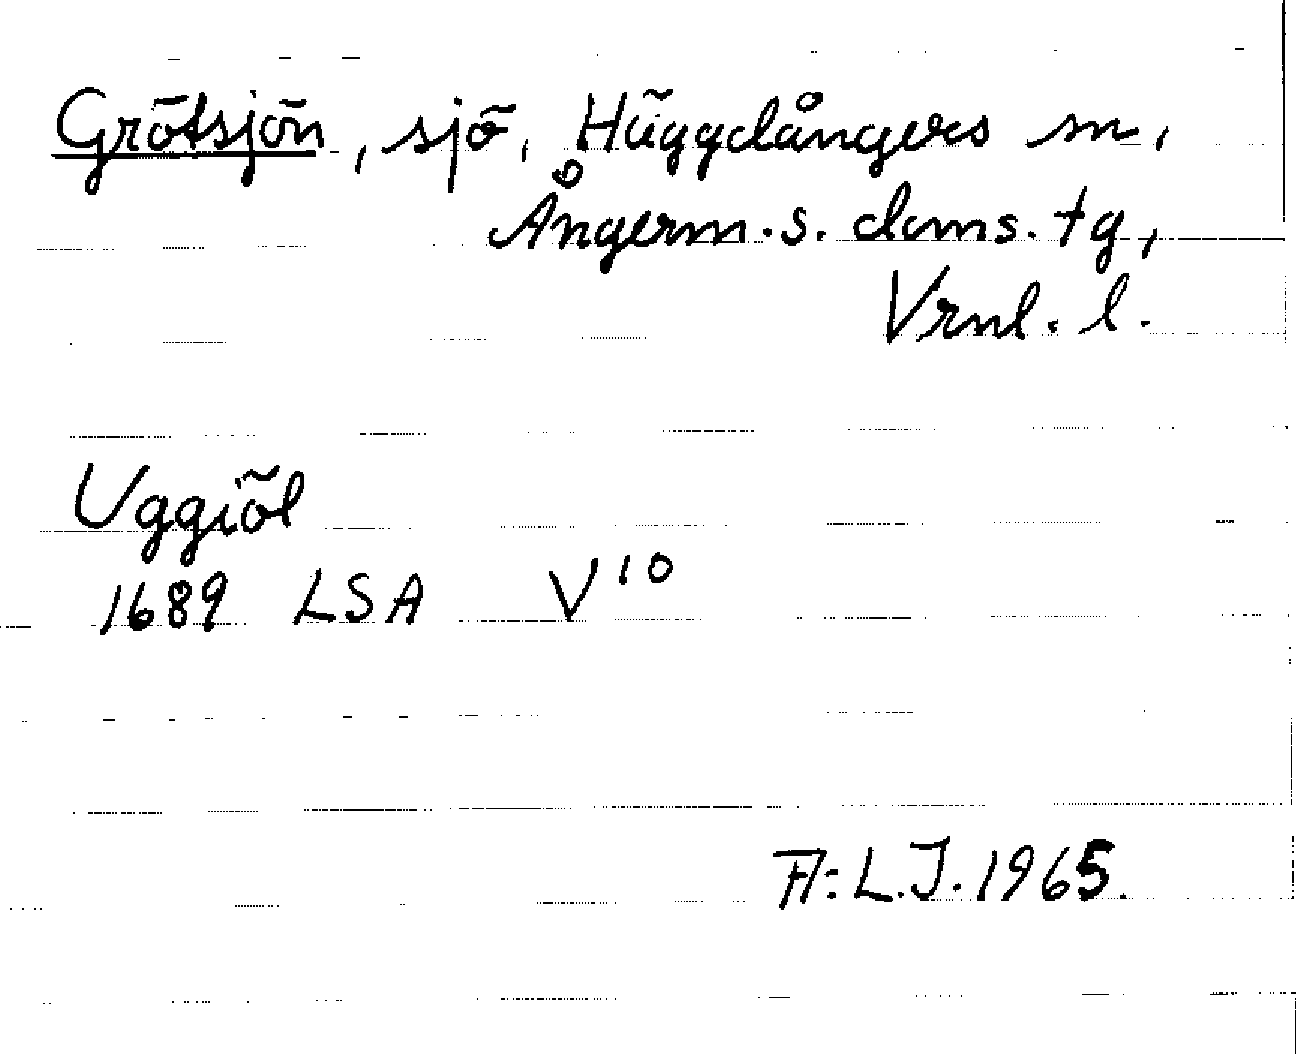 Grötsjön, sjö, Häggdångers sn,
Ångerm. s. doms. tg,
Vrnl. l.
Uggiöl
1689 LSA V¹⁰
A: L.J. 1965.